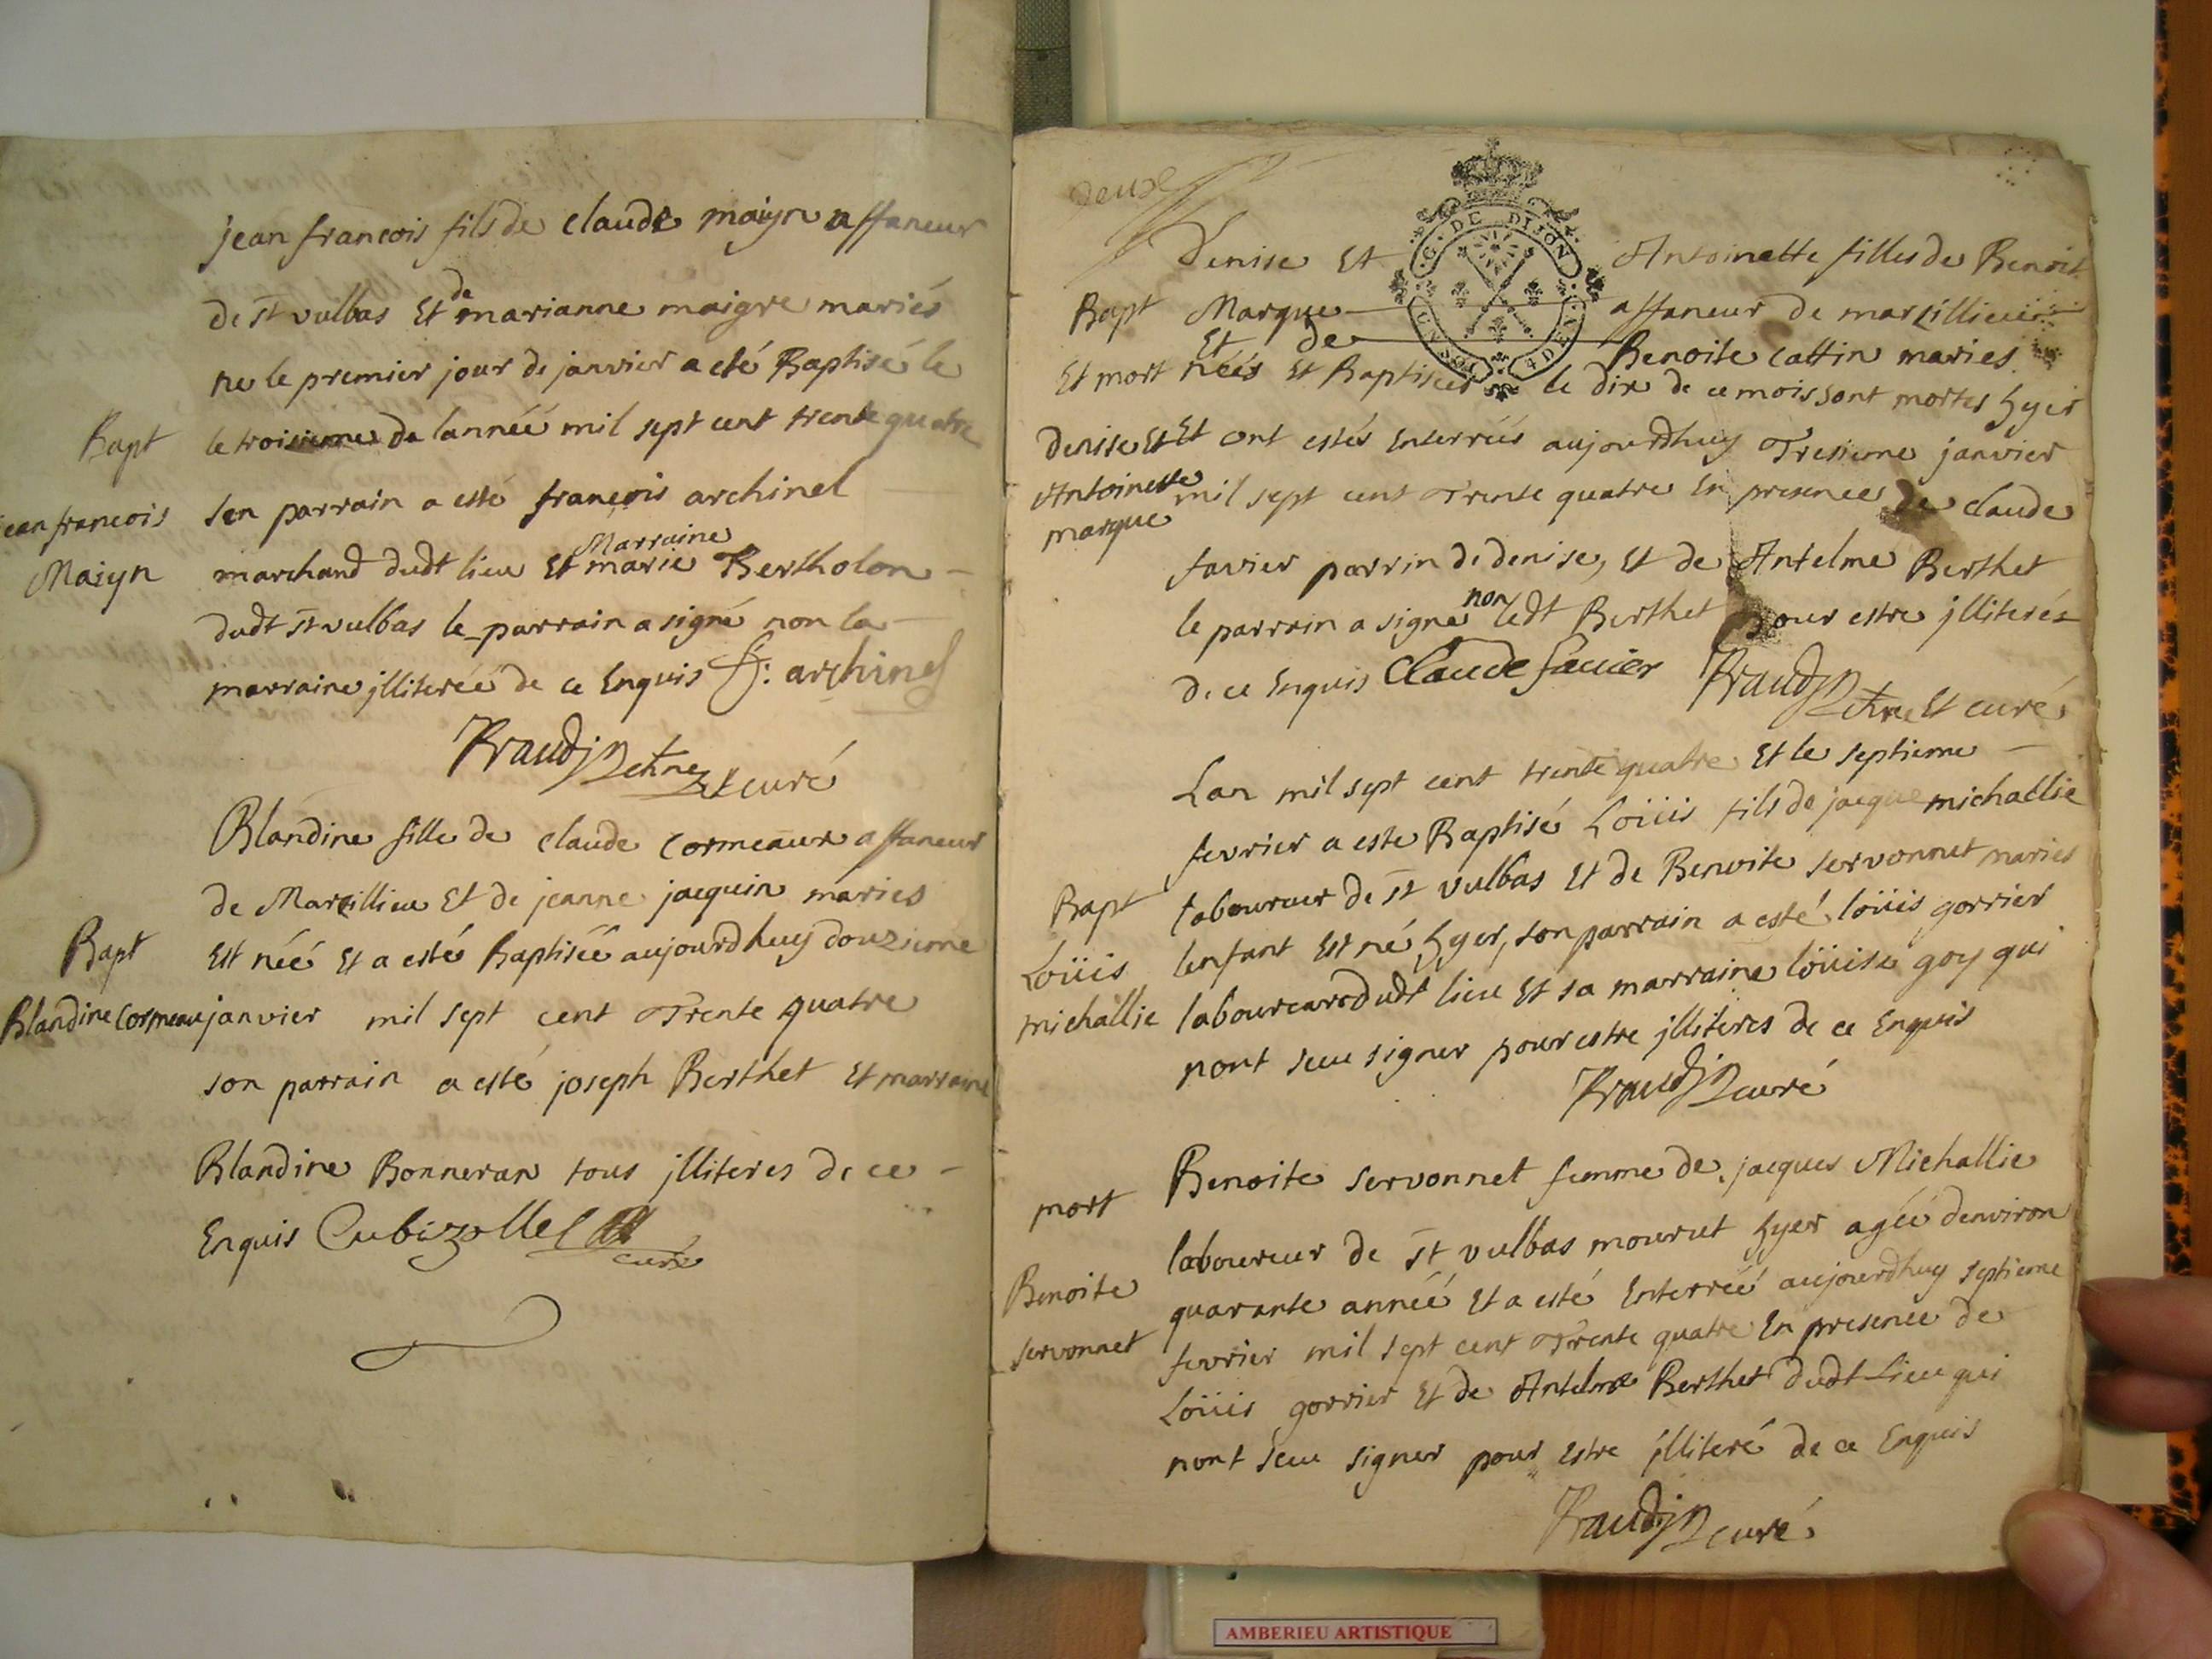 jean francois fils de claude maign affaneur
de st vulbas Et de marianne maigre mariés
ne le premier jour de janvier a eté Baptisé le
Bapt
le troisieme de lannéé mil sept cent trente quatre
jean francois
Maign
son parrain a esté françois archinel
marchand dudt lieu Et Marraine marie Bertholon
dudt st vulbas le parrain a signé non la
marraine jlliteréé de ce Enquis f: archinel
Et curé
Blandine fille de claude cormeaux affaneur
de Marcillieu Et de jeanne jacquin maries
Bapt
Blandine Cormeau
Est néé Et a esté Baptiséé aujourdhuy douzieme
janvier mil sept cent Trente quatre
son parrain a esté joseph Berthet Et marraine
Blandine Bonneran tous jlliteres de ce
Enquis Cubizolle
curé
deux
G. DE DIJON
Denise Et Antoinette filles de Benoit
Bapt
Et mort
denise Et
Antoinette
marque
Marque affaneur de marcillieu
Et de Benoite cattin maries
néés Et Baptisées le dix de ce mois sont mortes hyer
Et ont estés Enterréés aujourdhuy Tresieme janvier
mil sept cent Trente quatre En presence de claude
favier parrin de denise, Et de Antelme Berthet
le parrain a signé non ledt Berthet pour estre jlliterés
de ce Enquis Claude favier
Et curé
Lan mil sept cent trente quatre Et le septieme
fevrier a este Baptisé Loüis fils de jacque michallie
Bapt
Loüis
michallie
laboureur de st vulbas Et de Benoite servonnet maries
lenfant Est né hyer, son parrain a esté loüis gorrier
laboureur dudt lieu Et sa marraine loüise goy qui
nont seu signer pour estre jlliteres de ce Enquis
curé
mort
Benoite
servonnet
Benoite servonnet femme de jacques Michallie
laboureur de st vulbas mourut hyer agéé denviron
quarante annéé Et a esté Enterréé aujourdhuy septieme
fevrier mil sept cent Trente quatre En presence de
Loüis gorrier Et de Antelme Berthet dudt Lieu qui
nont seu signer pour Estre jlliteré de ce Enquis
curé
AMBERIEU ARTISTIQUE